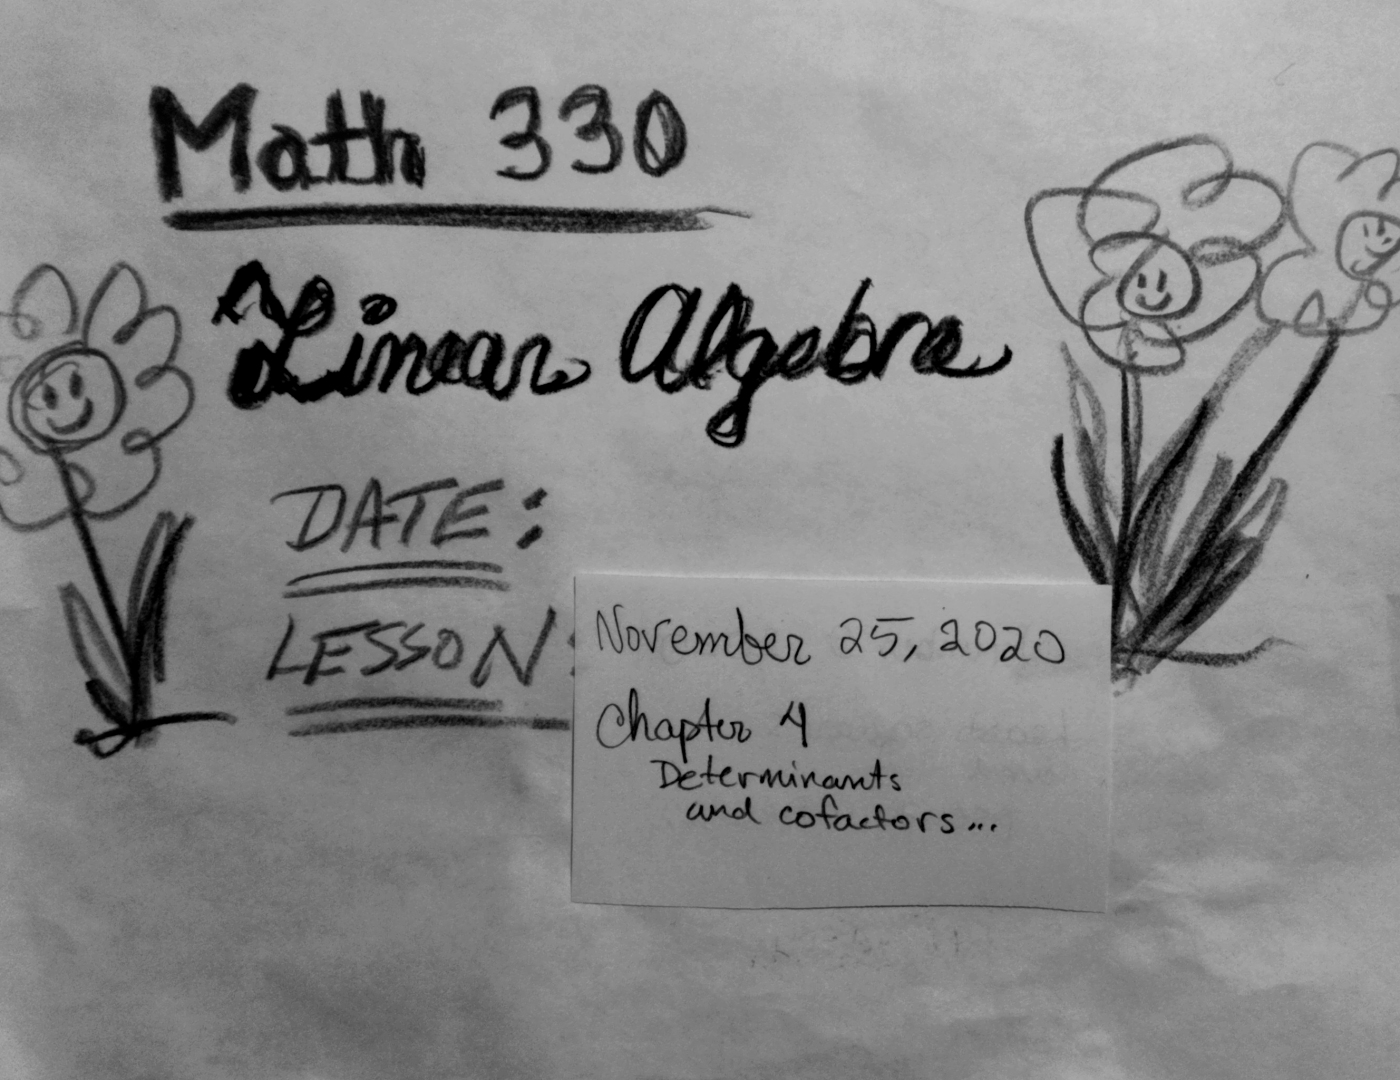 Math 330
Linear Algebra
DATE:
LESSON:
November 25, 2020
Chapter 4
Determinants
and cofactors...